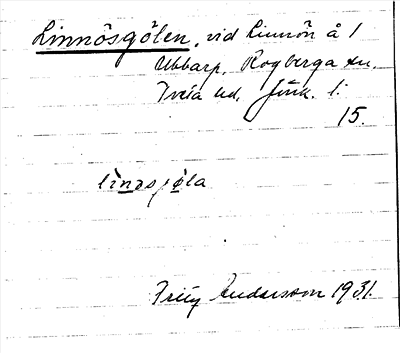 Linnösgölen, vid Linnön å 1
Ubbarp, Rogberga sn,
Tveta hd, Jönk. l.
15.
linəsjøla
Fritz Andersson 1931.